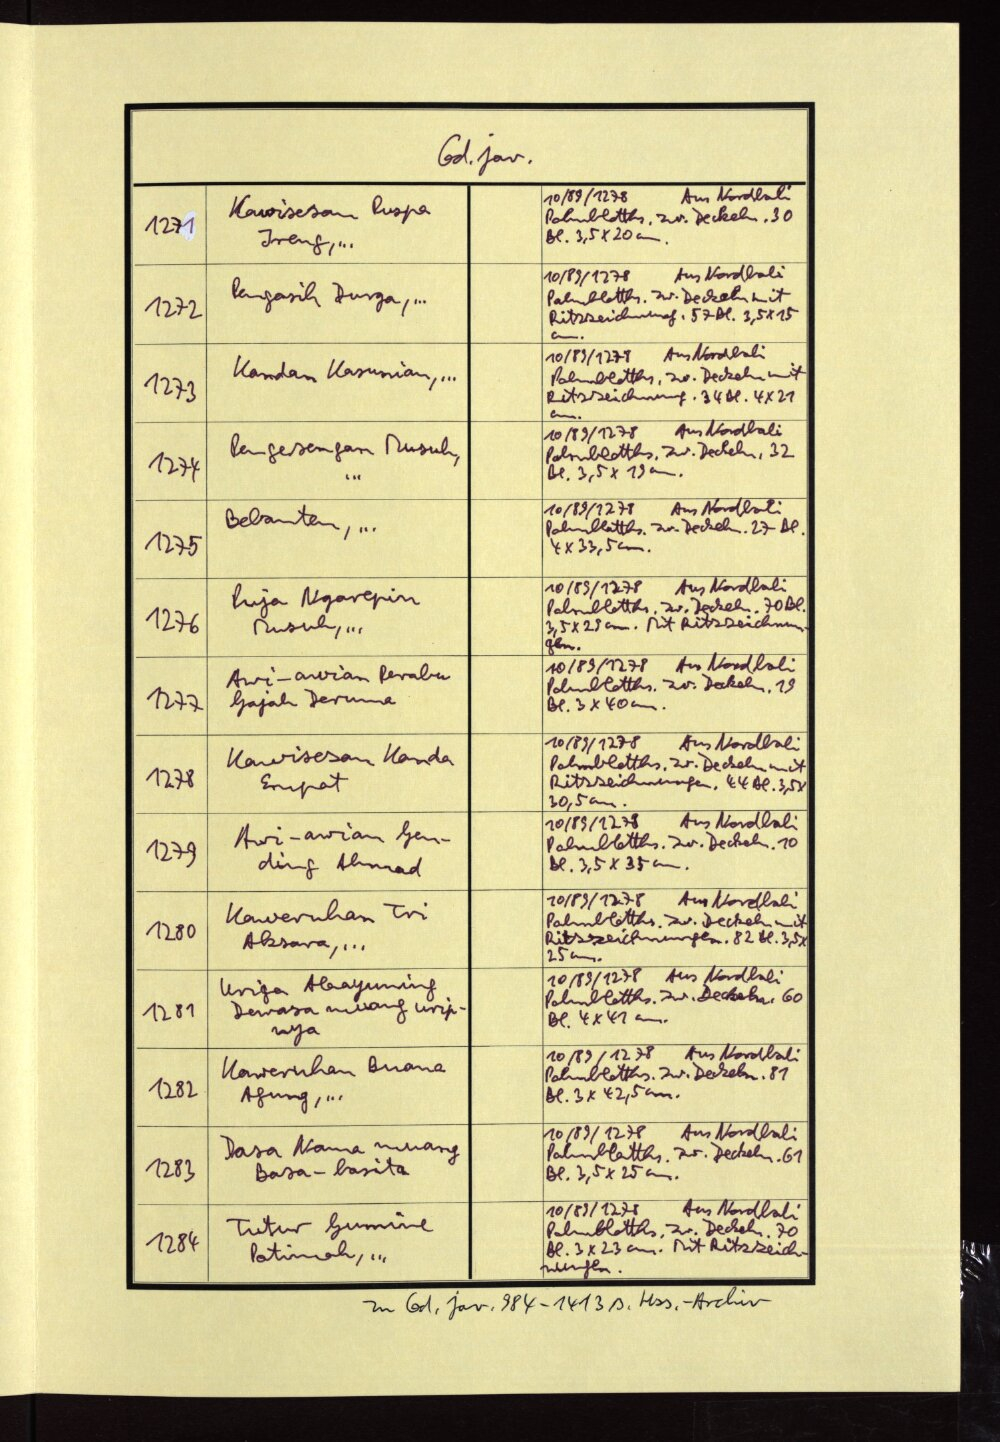 Cod. jav.
1271
Kawisesan Puspa
Ireng, ...
10/89/1278 Aus Nordbali
Palmblatths. zw. Deckeln. 30
Bl. 3,5 x 20 cm.
1272
Pengasih Durga, ...
10/89/1278 Aus Nordbali
Palmblatths. zw. Deckeln mit
Ritzzeichnung. 57 Bl. 3,5 x 15
cm.
1273
Kandan Kasunian, ...
10/89/1278 Aus Nordbali
Palmblatths. zw. Deckeln mit
Ritzzeichnung. 34 Bl. 4 x 21
cm.
1274
Pengesengan Musuh,
...
10/89/1278 Aus Nordbali
Palmblatths. zw. Deckeln. 32
Bl. 3,5 x 19 cm.
1275
Bebanten, ...
10/89/1278 Aus Nordbali
Palmblatths. zw. Deckeln. 27 Bl.
4 x 33,5 cm.
1276
Puja Ngarepin
Musuh, ...
10/89/1278 Aus Nordbali
Palmblatths. zw. Deckeln. 70 Bl.
3,5 x 29 cm. Mit Ritzzeichnun-
gen.
1277
Awi-awian Perabu
Gajah Deruma
10/89/1278 Aus Nordbali
Palmblatths. zw. Deckeln. 19
Bl. 3 x 40 cm.
1278
Kawisesan Kanda
Empat
10/89/1278 Aus Nordbali
Palmblatths. zw. Deckeln mit
Ritzzeichnungen. 44 Bl. 3,5 x
30,5 cm.
1279
Awi-awian Gen-
ding Ahmad
10/89/1278 Aus Nordbali
Palmblatths. zw. Deckeln. 10
Bl. 3,5 x 35 cm.
1280
Kaweruhan Tri
Aksara, ...
10/89/1278 Aus Nordbali
Palmblatths. zw. Deckeln mit
Ritzzeichnungen. 82 Bl. 3,5 x
25 cm.
1281
Uriga Alaayuning
Dewasa muang urip-
nya
10/89/1278 Aus Nordbali
Palmblatths. zw. Deckeln. 60
Bl. 4 x 41 cm.
1282
Kaweruhan Buana
Agung, ...
10/89/1278 Aus Nordbali
Palmblatths. zw. Deckeln. 81
Bl. 3 x 42,5 cm.
1283
Dasa Nama muang
Basa-basita
10/89/1278 Aus Nordbali
Palmblatths. zw. Deckeln. 61
Bl. 3,5 x 25 cm.
1284
Tutur Gumine
Patimah, ...
10/89/1278 Aus Nordbali
Palmblatths. zw. Deckeln. 70
Bl. 3 x 23 cm. Mit Ritzzeich-
nungen.
zu Cod. jav. 984-1413 s. Hss.-Archiv